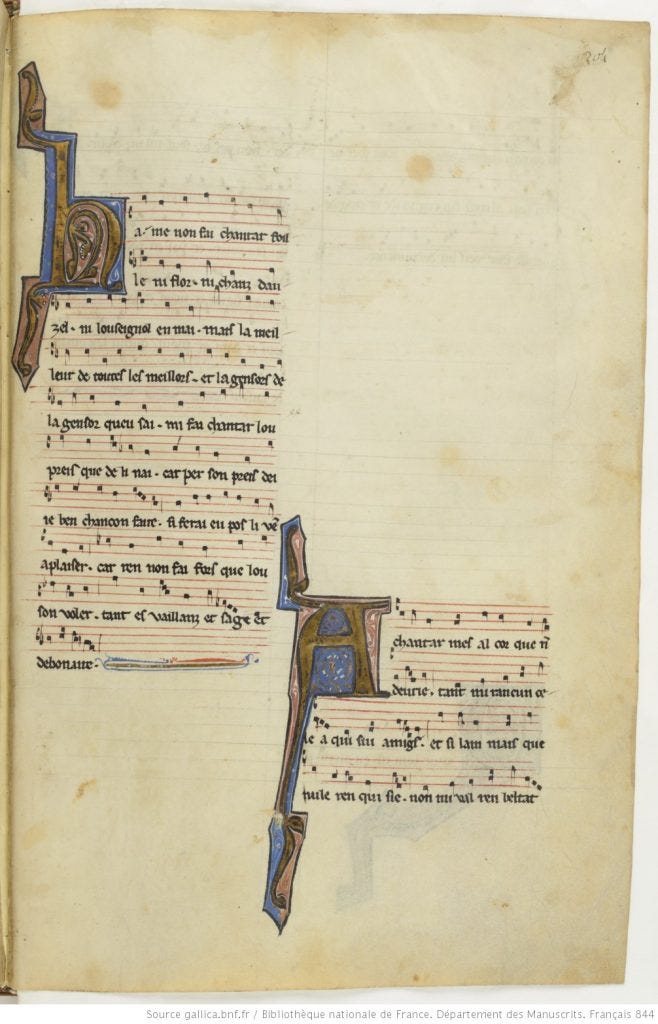 204
a me non fai chantar foil
le ni flor. ni chanz dau
zel. ni louseignol en mai. mais la meil
leur de toutes les meillors. et la gensors de
la gensor queu sai. mi fai chantar lou
preis que de li nai. car per son preis dei
ie ben chancon faire. si ferai eu pos li ven
a plaiser. car ren non fai fors que lou
son voler. tant es vaillanz et sage et
debonaire.
A chantar mes al cor que n
deurie. tant mi rancun ce
le a qui sui amigs. et si lam mais que
nule ren qui sie. non mi val ren beltat
Source gallica.bnf.fr / Bibliothèque nationale de France. Département des Manuscrits. Français 844